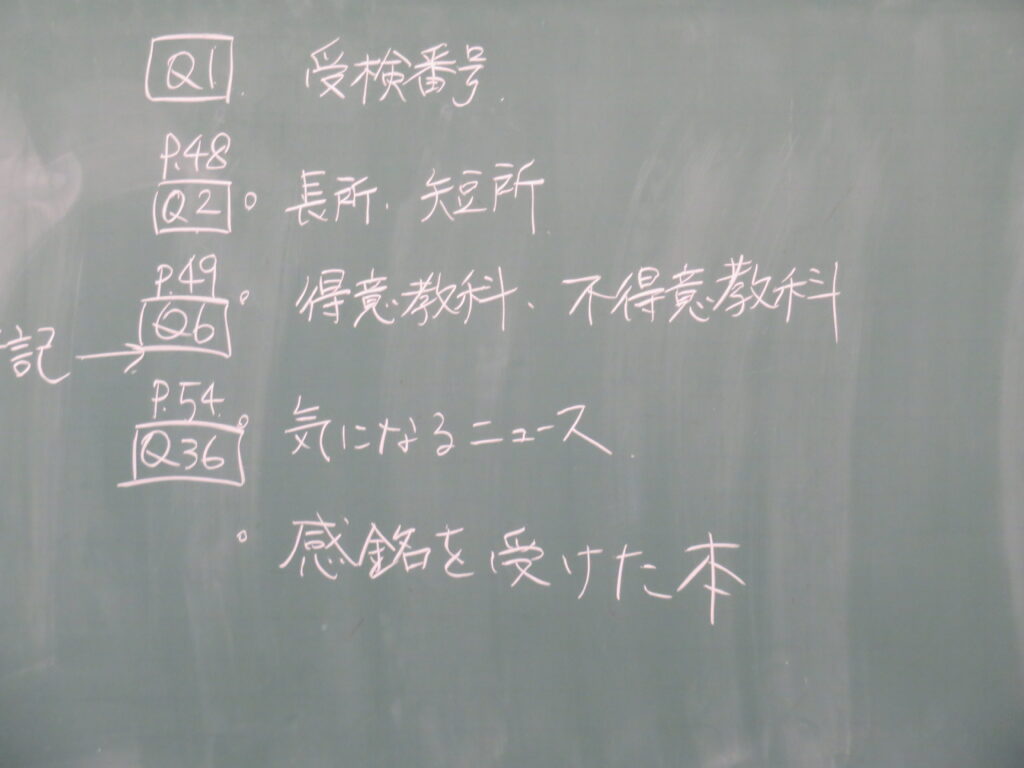 Q1 受検番号
P.48
Q2 長所、短所
P.49
Q6 得意教科、不得意教科
記→
P.54
Q36 気になるニュース
感銘を受けた本